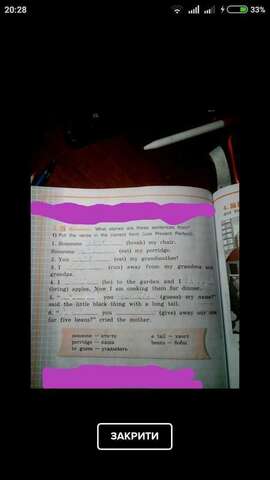 20:28
33%
What stories are these sentences from?
1) Put the verbs in the correct form (use Present Perfect).
1. Someone (break) my chair.
Someone (eat) my porridge.
2. You (eat) my grandmother!
3. I (run) away from my grandma and
grandpa.
4. I (be) to the garden and I
(bring) apples. Now I am cooking them for dinner.
5. " you (guess) my name?"
said the little black thing with a long tail.
6. " you (give) away our cow
for five beans?" cried the mother.
someone — хто-то
a tail — хвост
porridge — каша
beans — бобы
to guess — угадывать
ЗАКРИТИ